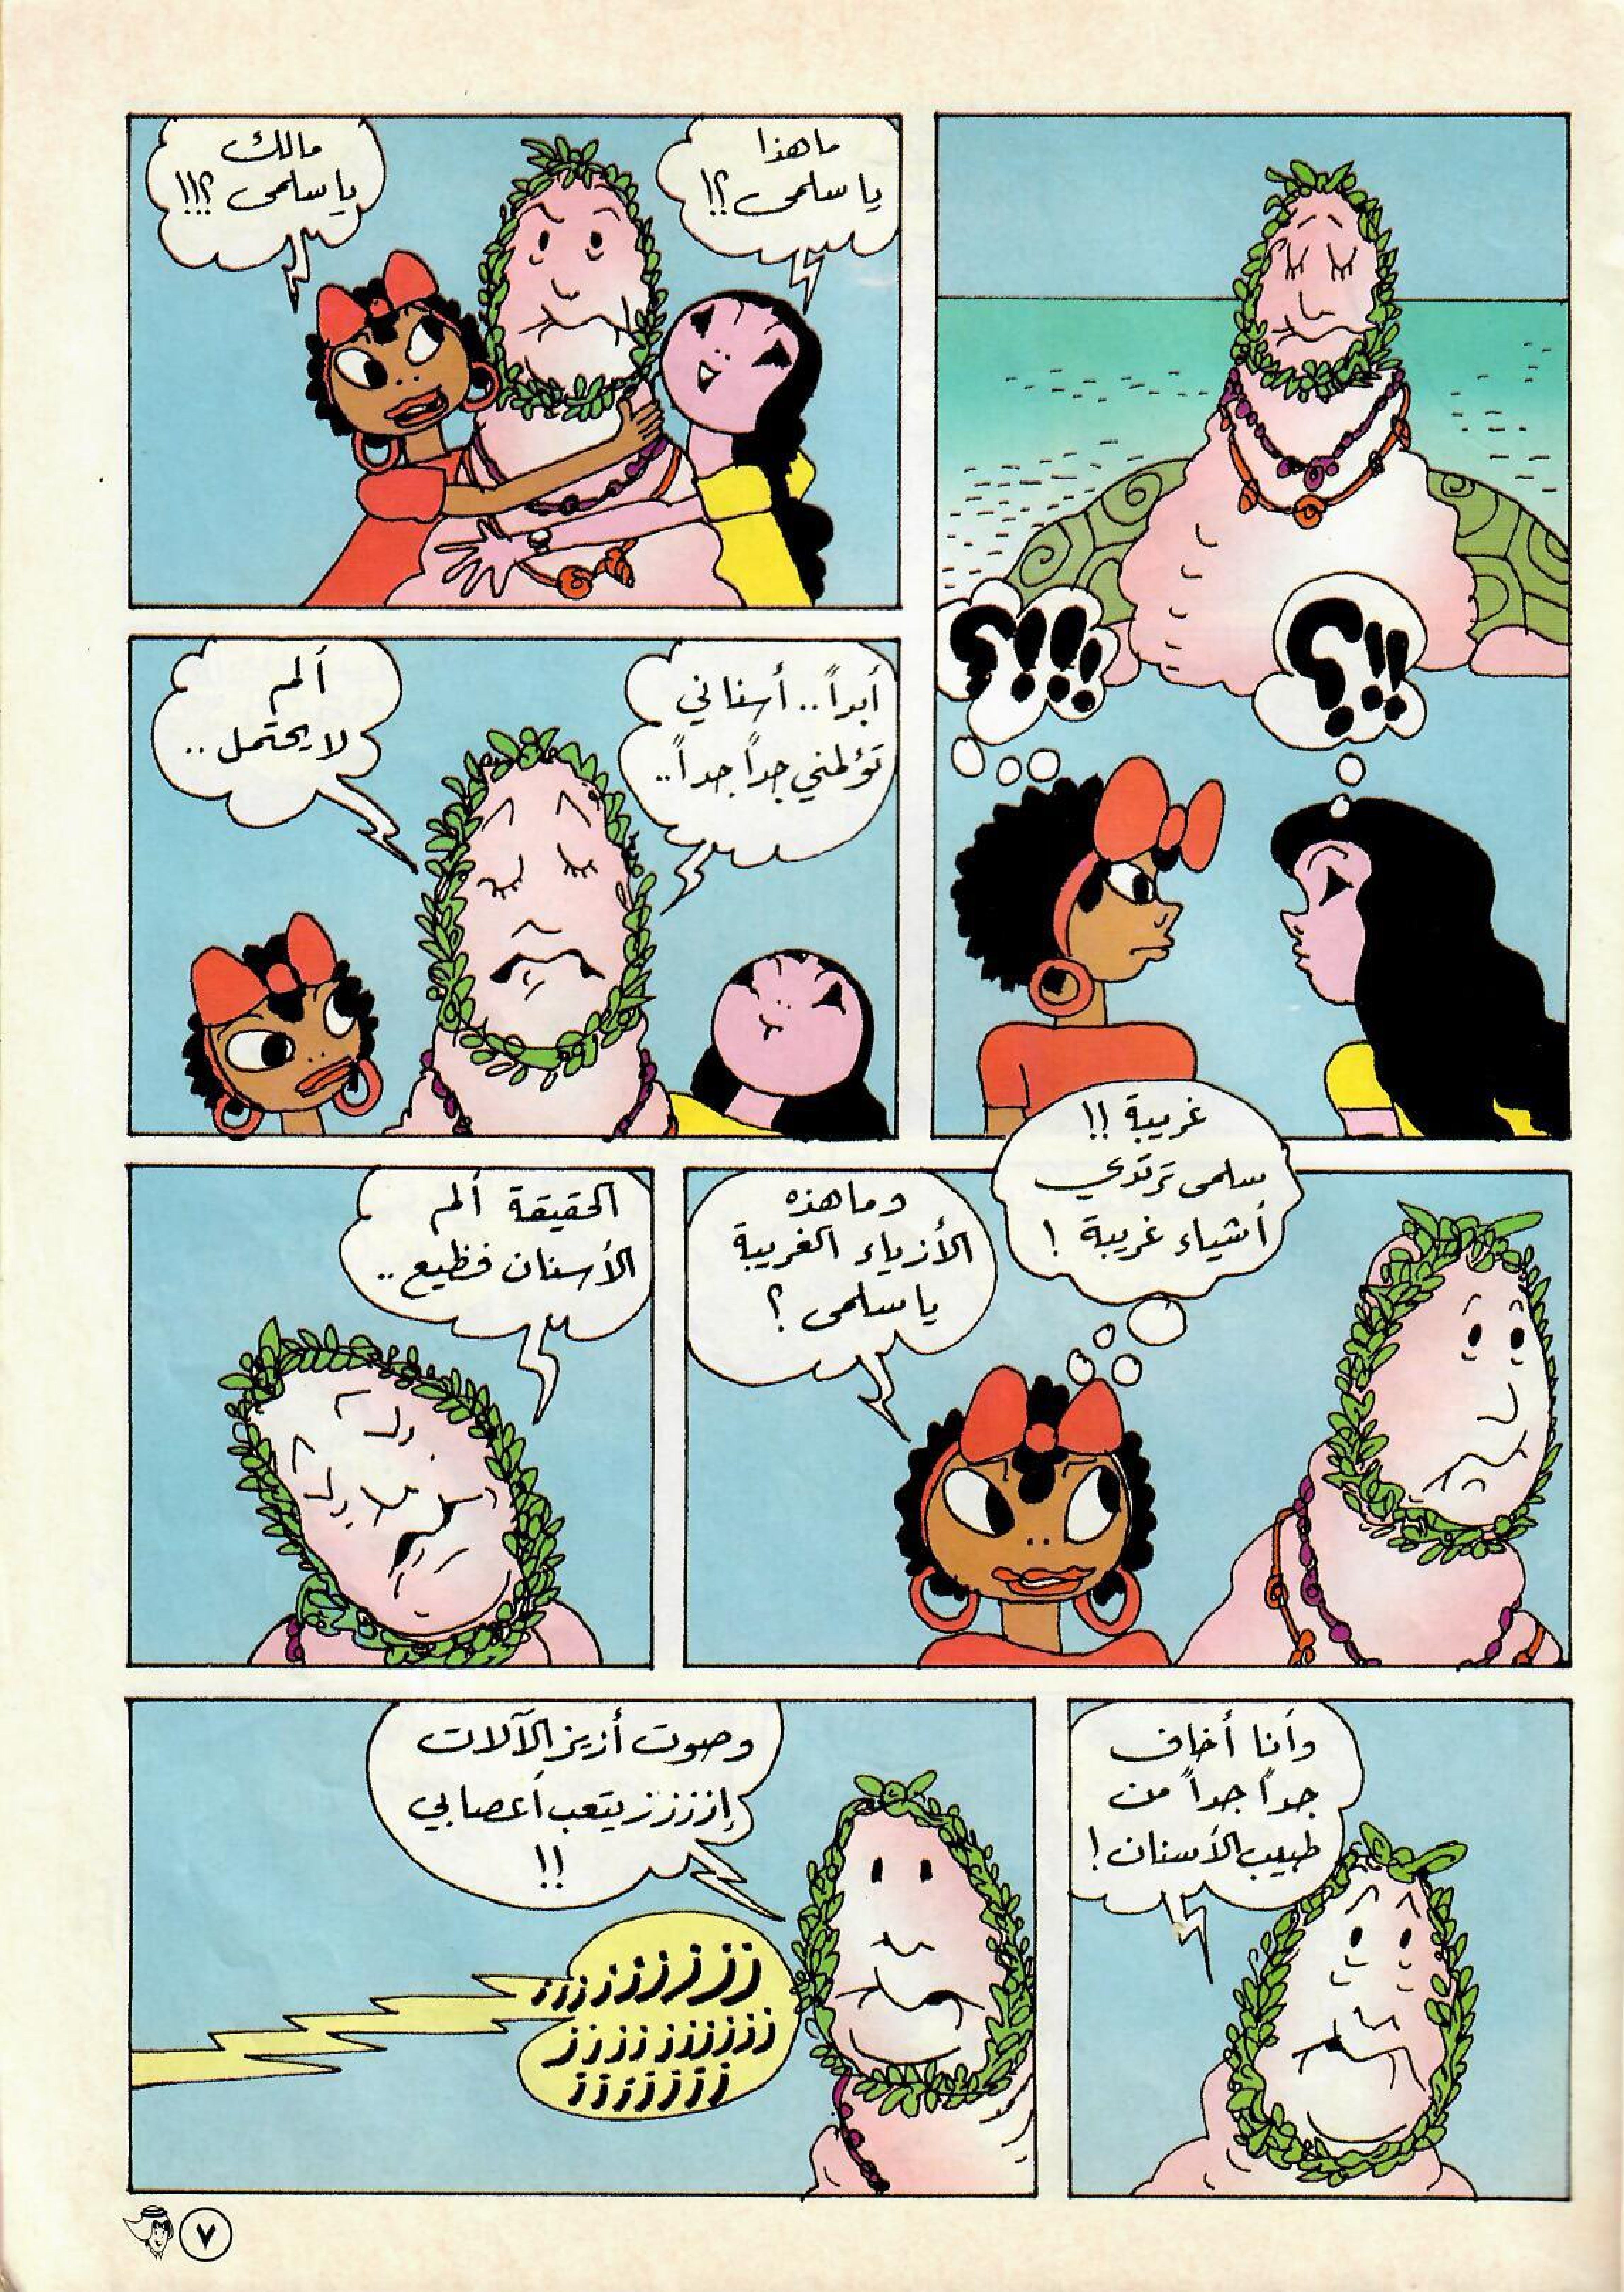 !!؟
؟!!!
ما هذا
يا سلمى ؟!
مالك
يا سلمى ؟!!
أبداً .. أسناني
تؤلمني جداً جداً ..
ألم
لا يحتمل ..
غريبة !!
سلمى ترتدي
أشياء غريبة !
وما هذه
الأزياء الغريبة
يا سلمى ؟
الحقيقة ألم
الأسنان فظيع ..
وأنا أخاف
جداً جداً من
طبيب الأسنان !
وصوت أزيز الآلات
إزززز يتعب أعصابي
!!
زززززززززز
زززززززززز
ززززززز
٧